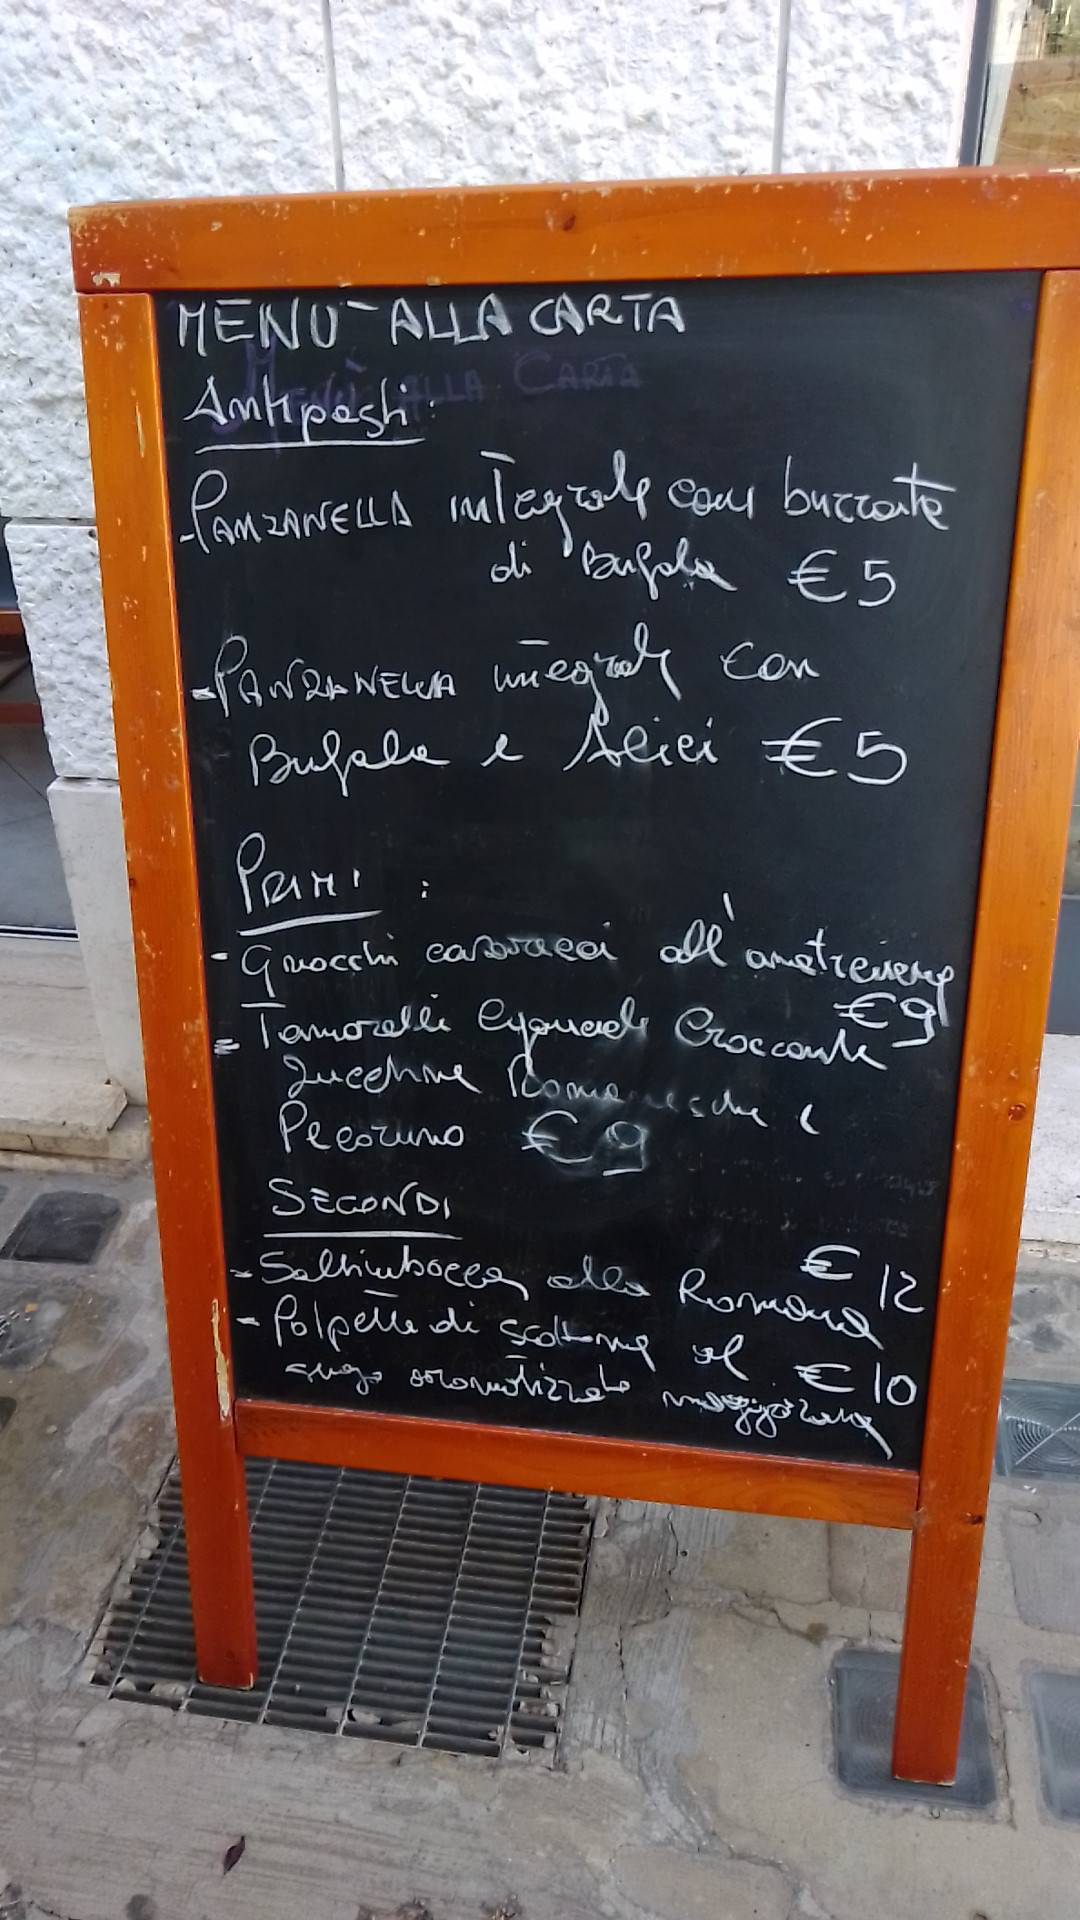 MENU' ALLA CARTA
Menù alla Carta
Antipasti:
- PANZANELLA integrale con burrata
di Bufala € 5
- PANZANELLA integrale con
Bufala e Alici € 5
PRIMI :
- Gnocchi casarecci all'amatriciana
€ 9
- Tonnarelli Guanciale Croccante
Zucchine Romanesche e
Pecorino € 9
SECONDI
- Saltimbocca alla Romana € 12
- Polpette di scottona al € 10
sugo aromatizzato maggiorana